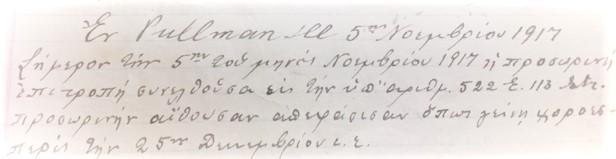 Ἐν Pullman Ill 5ην Νοεμβρίου 1917
Σήμερον τήν 5ην τοῦ μηνός Νοεμβρίου 1917 ἡ προσωρινή
ἐπιτροπή συνελθοῦσα εἰς τήν ὑπ' ἀριθμ. 522 E. 113 Str.
προσωρινήν αἴθουσαν ἀπεφάσισαν ὅπως γείνῃ χοροεσ-
περίς τήν 25ην Δεκεμβρίου ἐ.ἔ.